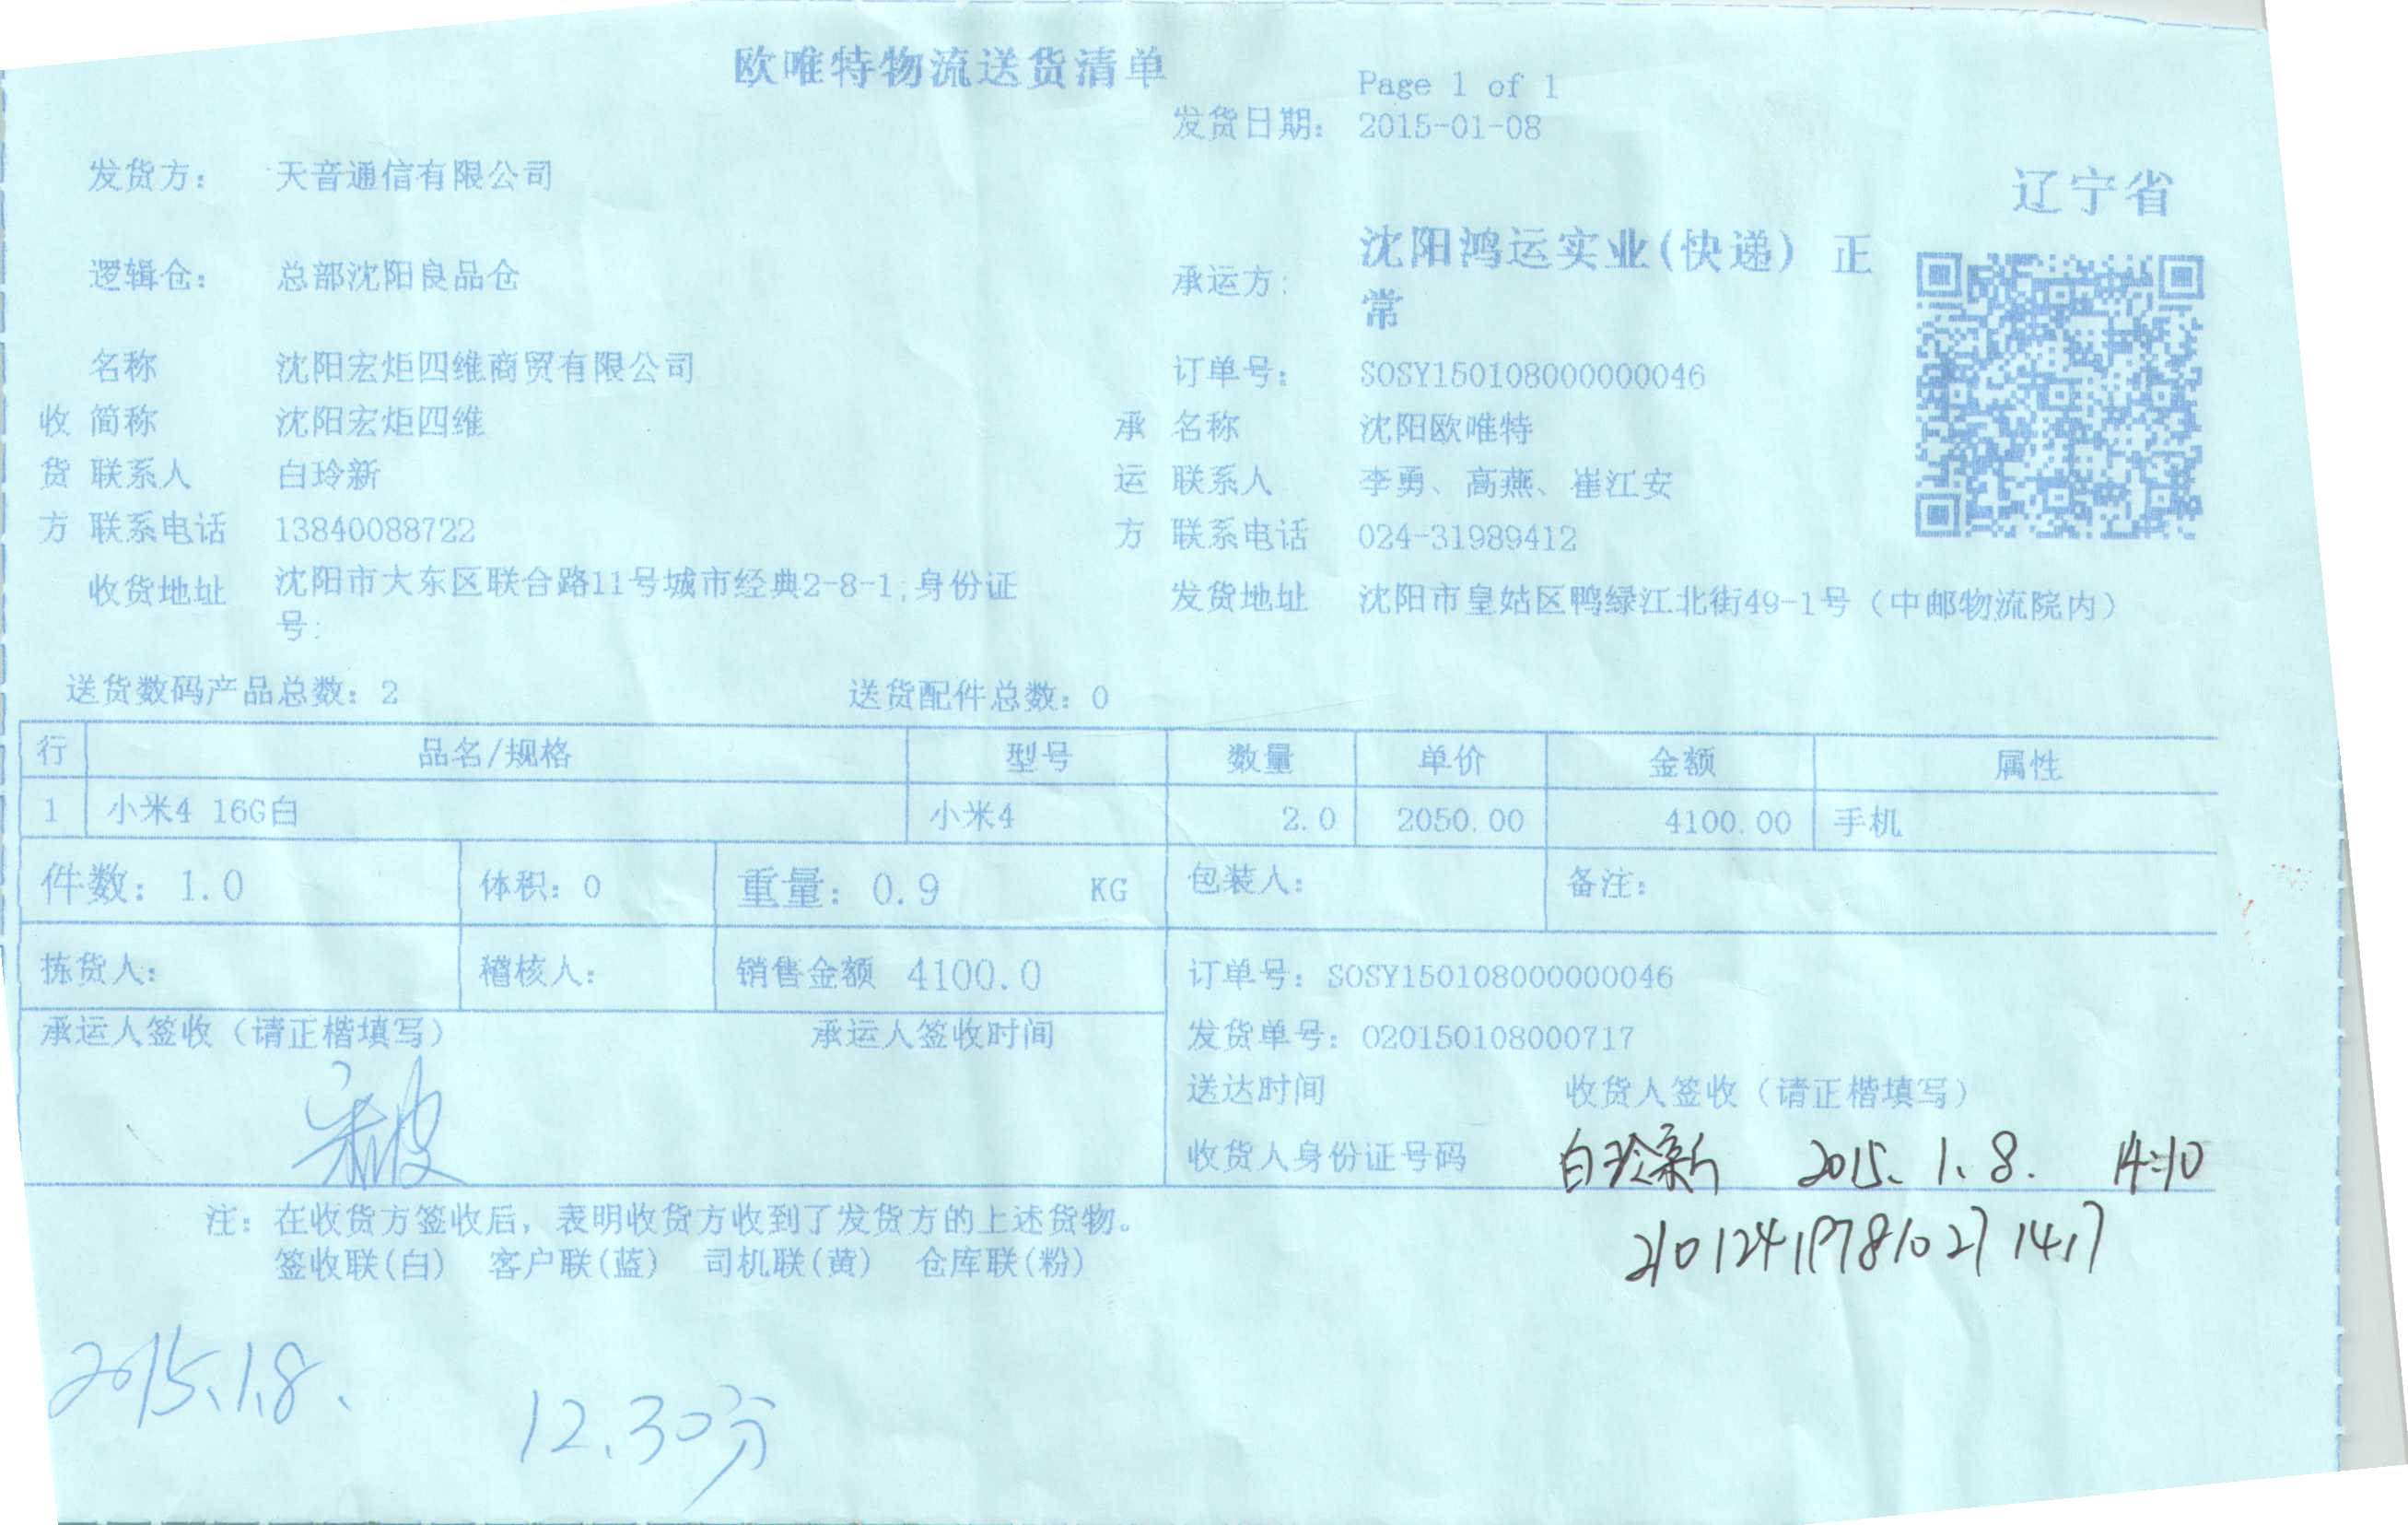 欧唯特物流送货清单
Page 1 of 1
发货日期: 2015-01-08
发货方: 天音通信有限公司
辽宁省
逻辑仓: 总部沈阳良品仓
承运方: 沈阳鸿运实业(快递) 正常
名称 沈阳宏炬四维商贸有限公司
订单号: SOSY150108000000046
收 简称 沈阳宏炬四维
承 名称 沈阳欧唯特
货 联系人 白玲新
运 联系人 李勇、高燕、崔江安
方 联系电话 13840088722
方 联系电话 024-31989412
收货地址 沈阳市大东区联合路11号城市经典2-8-1;身份证
号:
发货地址 沈阳市皇姑区鸭绿江北街49-1号（中邮物流院内）
送货数码产品总数: 2 送货配件总数: 0
行 品名/规格 型号 数量 单价 金额 属性
1 小米4 16G白 小米4 2.0 2050.00 4100.00 手机
件数: 1.0 体积: 0 重量: 0.9 KG 包装人: 备注:
拣货人: 稽核人: 销售金额 4100.0 订单号: SOSY150108000000046
承运人签收（请正楷填写） 承运人签收时间 发货单号: 020150108000717
送达时间 收货人签收（请正楷填写）
收货人身份证号码 白玲新 2015.1.8. 14:10
注: 在收货方签收后，表明收货方收到了发货方的上述货物。
签收联(白) 客户联(蓝) 司机联(黄) 仓库联(粉)
2015.1.8.
12.30分